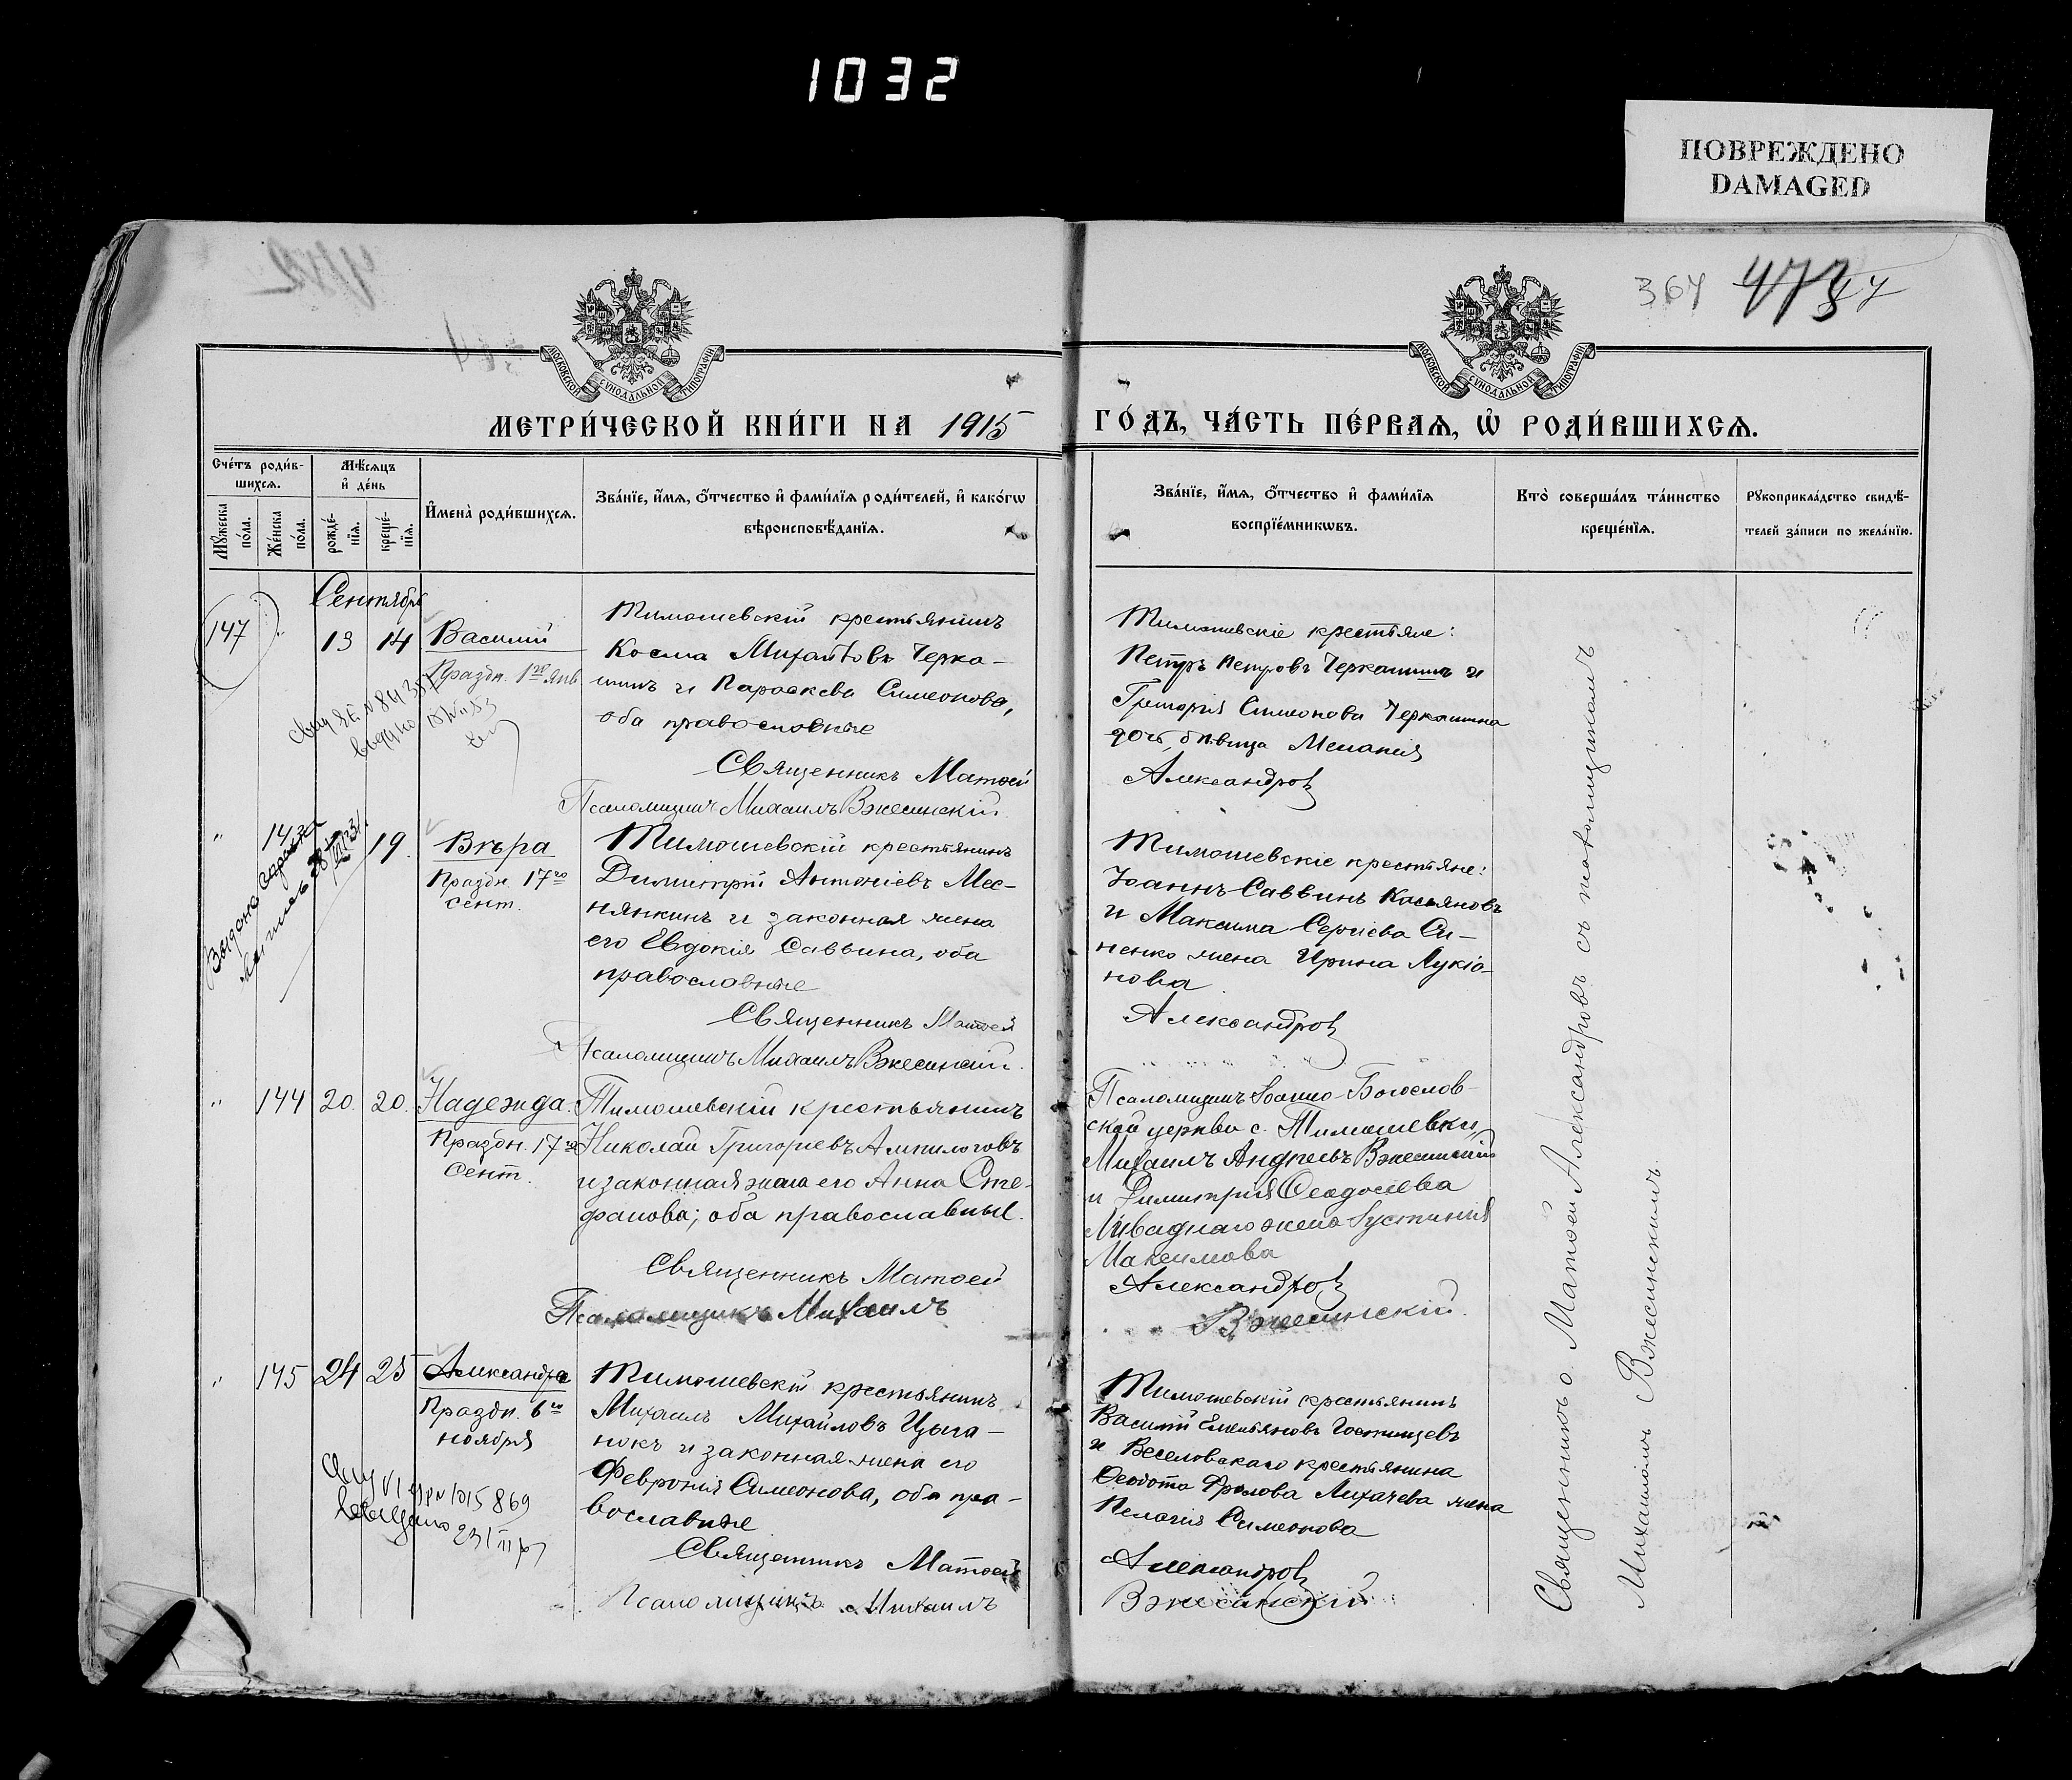 1032
ПОВРЕЖДЕНО
DAMAGED
364 473 47
МОСКОВСКОЙ СѴНОДАЛЬНОЙ ТИПОГРАФІИ
МОСКОВСКОЙ СѴНОДАЛЬНОЙ ТИПОГРАФІИ
МЕТРИ́ЧЕСКОЙ КНИ́ГИ НА 1915 ГО́ДЪ, ЧА́СТЬ ПЕ́РВАѦ, Ѡ҆ РОДИ́ВШИХСѦ.
Сче́тъ роди́в-
шихсѧ.
Мꙋ́жеска по́ла.
Же́нска по́ла.
Мѣ́сѧцъ
и҆ де́нь
рожде́-
нїѧ.
креще́-
нїѧ.
И҆мена̀ роди́вшихсѧ.
Зва́нїе, и҆́мѧ, ѻ҆́тчество и҆ фами́лїѧ роди́телей, и҆ како́гѡ
вѣроисповѣ́данїѧ.
Зва́нїе, и҆́мѧ, ѻ҆́тчество и҆ фами́лїѧ
воспрїе́мникѡвъ.
Кто̀ соверша́лъ та́инство
креще́нїѧ.
Рꙋкоприкла́дство свидѣ́-
телей за́писи по жела́нїю.
Сентябрь
147 " 13 14 Василій
Праздн. 1го янв
Тимошевскій крестьянинъ
Косма Михайловъ Черка-
шинъ и Параскева Симеонова,
оба православные
Священникъ Матѳей
Псаломщикъ Михаилъ Вжесинскій.
Тимошевскіе крестьяне:
Петръ Петровъ Черкашинъ и
Григорія Симеонова Черкашина
дочь, дѣвица Меланія
Александровъ
" 143 19. Вѣра
Праздн. 17го
сент.
Тимошевскій крестьянинъ
Димитрій Антоніевъ Мес-
нянкинъ и законная жена
его Евдокія Саввина, оба
православные
Священникъ Матѳей
Псаломщикъ Михаилъ Вжесинскій.
Тимошевскіе крестьяне:
Іоаннъ Саввинъ Касьяновъ
и Максима Сергіева Си-
ненко жена Ирина Лукіа-
нова
Александровъ
" 144 20. 20. Надежда.
Праздн. 17го
Сент.
Тимошевскій крестьянинъ
Николай Григорьевъ Ампилоговъ
и законная жена его Анна Сте-
фанова; оба православные.
Священникъ Матѳей
Псаломщикъ Михаилъ
Псаломщикъ Іоанно-Богослов-
ской церкви с. Тимошевки,
Михаилъ Андреевъ Вжесинскій
и Димитрія Ѳеодосіева
Ливаднаго жена Іустинія
Максимова
Александровъ
Вжесинскій.
" 145 24 25 Александра
Праздн. 6го
ноября
Тимошевскій крестьянинъ
Михаилъ Михайловъ Цыга-
нокъ и законная жена его
Февронія Симеонова, оба пра-
вославные
Священникъ Матѳей
Псаломщикъ Михаилъ
Тимошевскій крестьянинъ
Василій Емельяновъ Гостищевъ
и Веселовскаго крестьянина
Ѳеодота Фролова Лихачева жена
Пелагія Симеонова
Александровъ
Вжесинскій
Священникъ о. Матѳей Александровъ съ псаломщикомъ
Михаиломъ Вжесинскимъ.